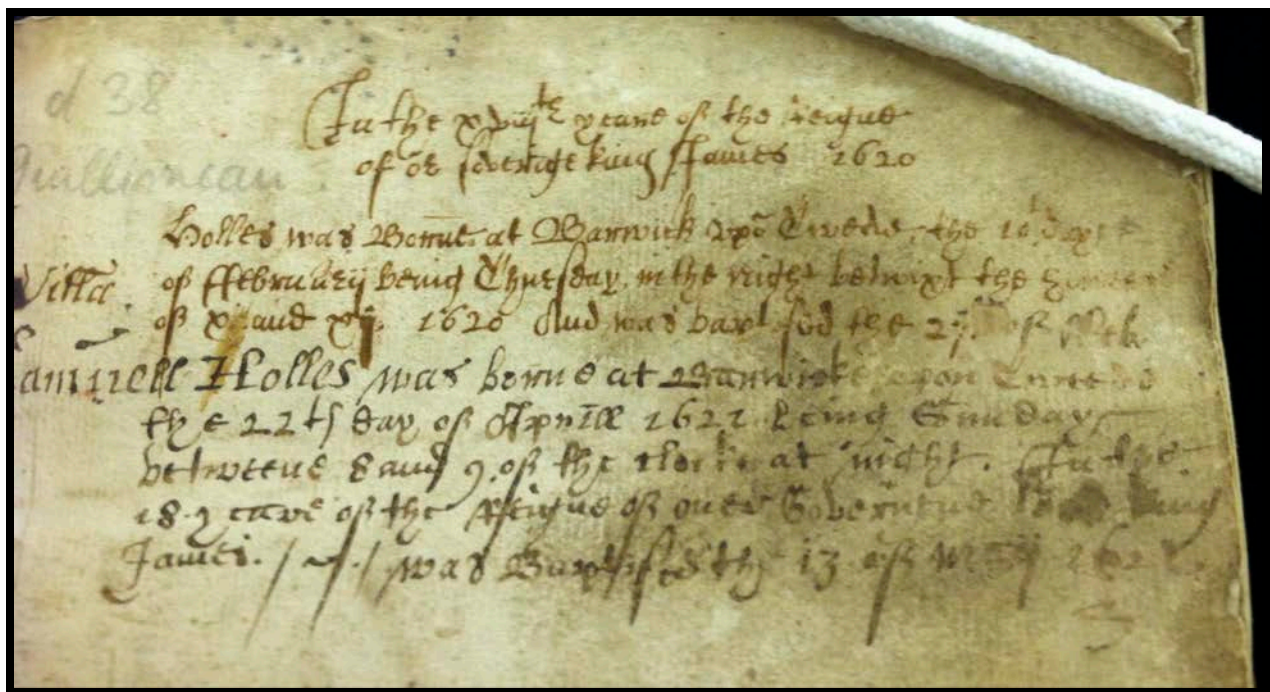 d 38
In the xviijth yeare of the reigne
of or soveraigne king James 1620
Holles was Borne at Barwick vpō Twede, the 10 day
Villa. of ffebruarij being Thursday in the night betwixt the howers
of xj and xij. 1620 And was bapt sed the 27 of
Holles was borne at Barwicke upon
the 22th day of Aprill 1621 being Sunday
betweene 8 and 9 of the clocke at night. In the
18 yeare of the Reigne of over king
James. was Baptised the 13 of May